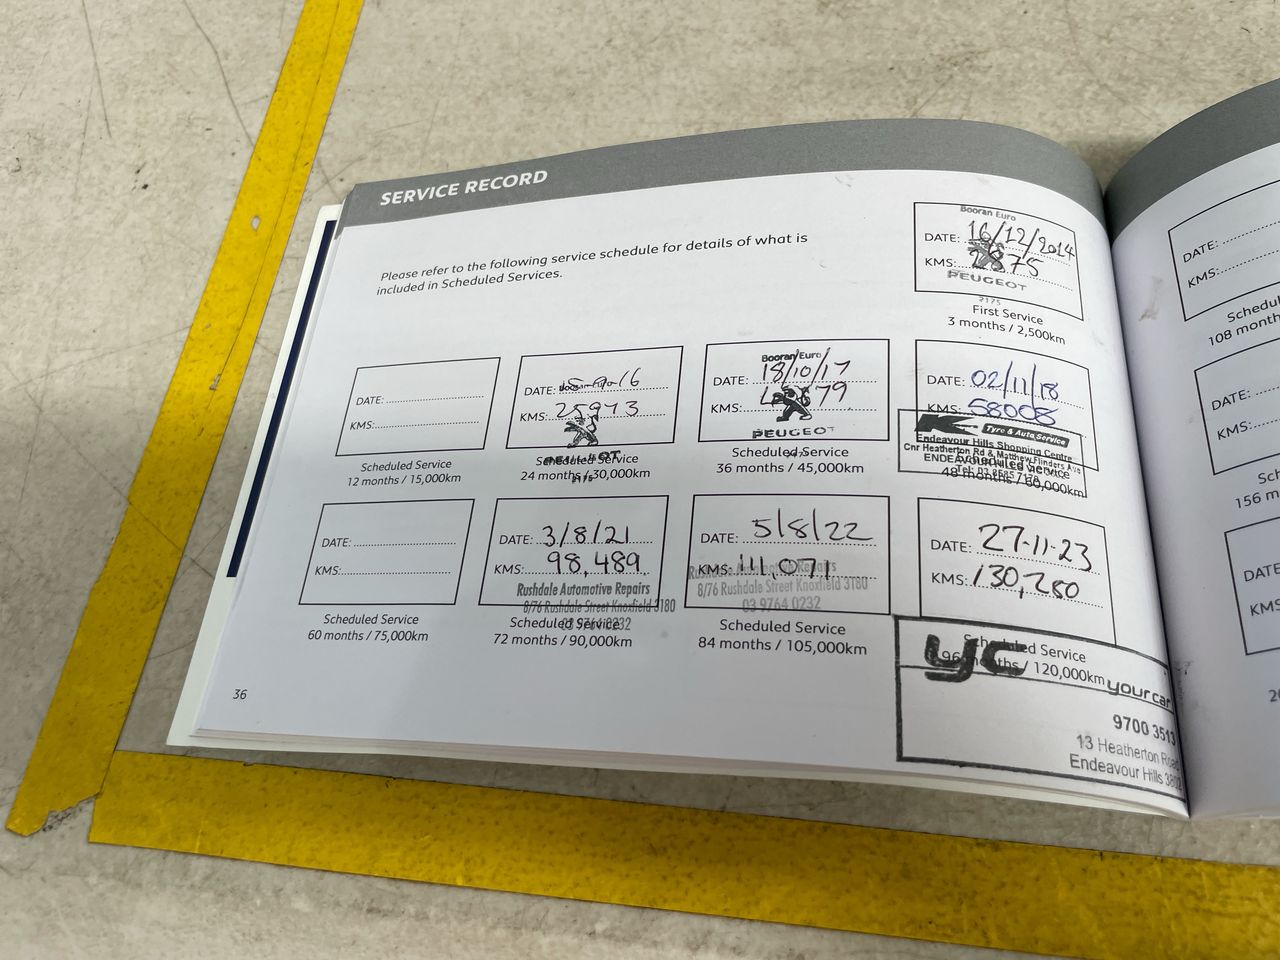 SERVICE RECORD
Please refer to the following service schedule for details of what is
included in Scheduled Services.
Booran Euro
DATE: 16/12/2014
KMS: 2875
PEUGEOT
2175
First Service
3 months / 2,500km
DATE:
KMS:
Scheduled Service
12 months / 15,000km
DATE:
KMS: 25973
PEUGEOT
2175
Scheduled Service
24 months / 30,000km
Booran Euro
DATE: 18/10/17
KMS:
PEUGEOT
Scheduled Service
36 months / 45,000km
DATE: 02/11/18
KMS: 58008
Tyre & Auto Service
Endeavour Hills Shopping Centre
Cnr Heatherton Rd & Matthew Flinders Ave
Scheduled Service
48 months / 60,000km
DATE:
KMS:
Scheduled Service
60 months / 75,000km
DATE: 3/8/21
KMS: 98,489
Rushdale Automotive Repairs
8/76 Rushdale Street Knoxfield 3180
03 9764 0232
Scheduled Service
72 months / 90,000km
DATE: 5/8/22
KMS: 111,071
Rushdale Automotive Repairs
8/76 Rushdale Street Knoxfield 3180
03 9764 0232
Scheduled Service
84 months / 105,000km
DATE: 27-11-23
KMS: 130,280
Scheduled Service
96 months / 120,000km
yc
your car
9700 3513
13 Heatherton Road
Endeavour Hills 3802
36
DATE:
KMS:
108
DATE:
KMS:
156
DATE
KMS